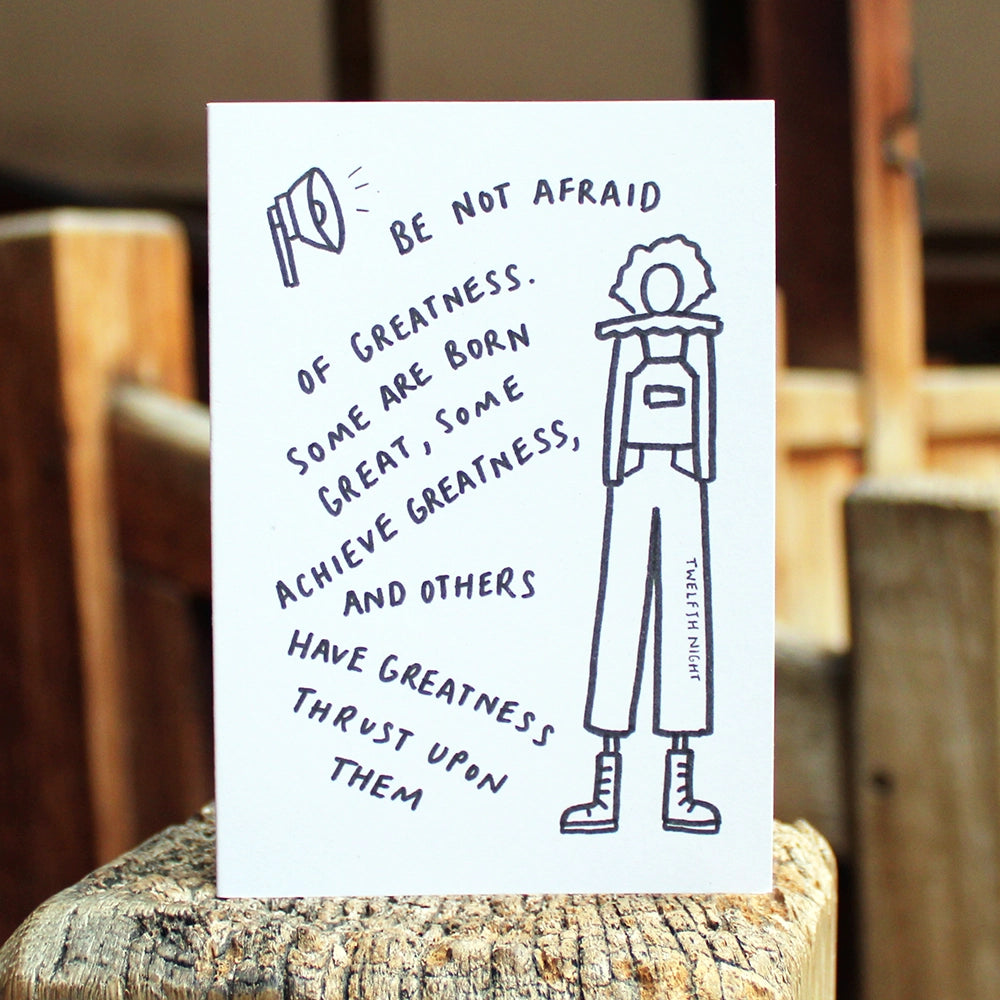 BE NOT AFRAID
OF GREATNESS.
SOME ARE BORN
GREAT, SOME
ACHIEVE GREATNESS,
AND OTHERS
HAVE GREATNESS
THRUST UPON
THEM
TWELFTH NIGHT